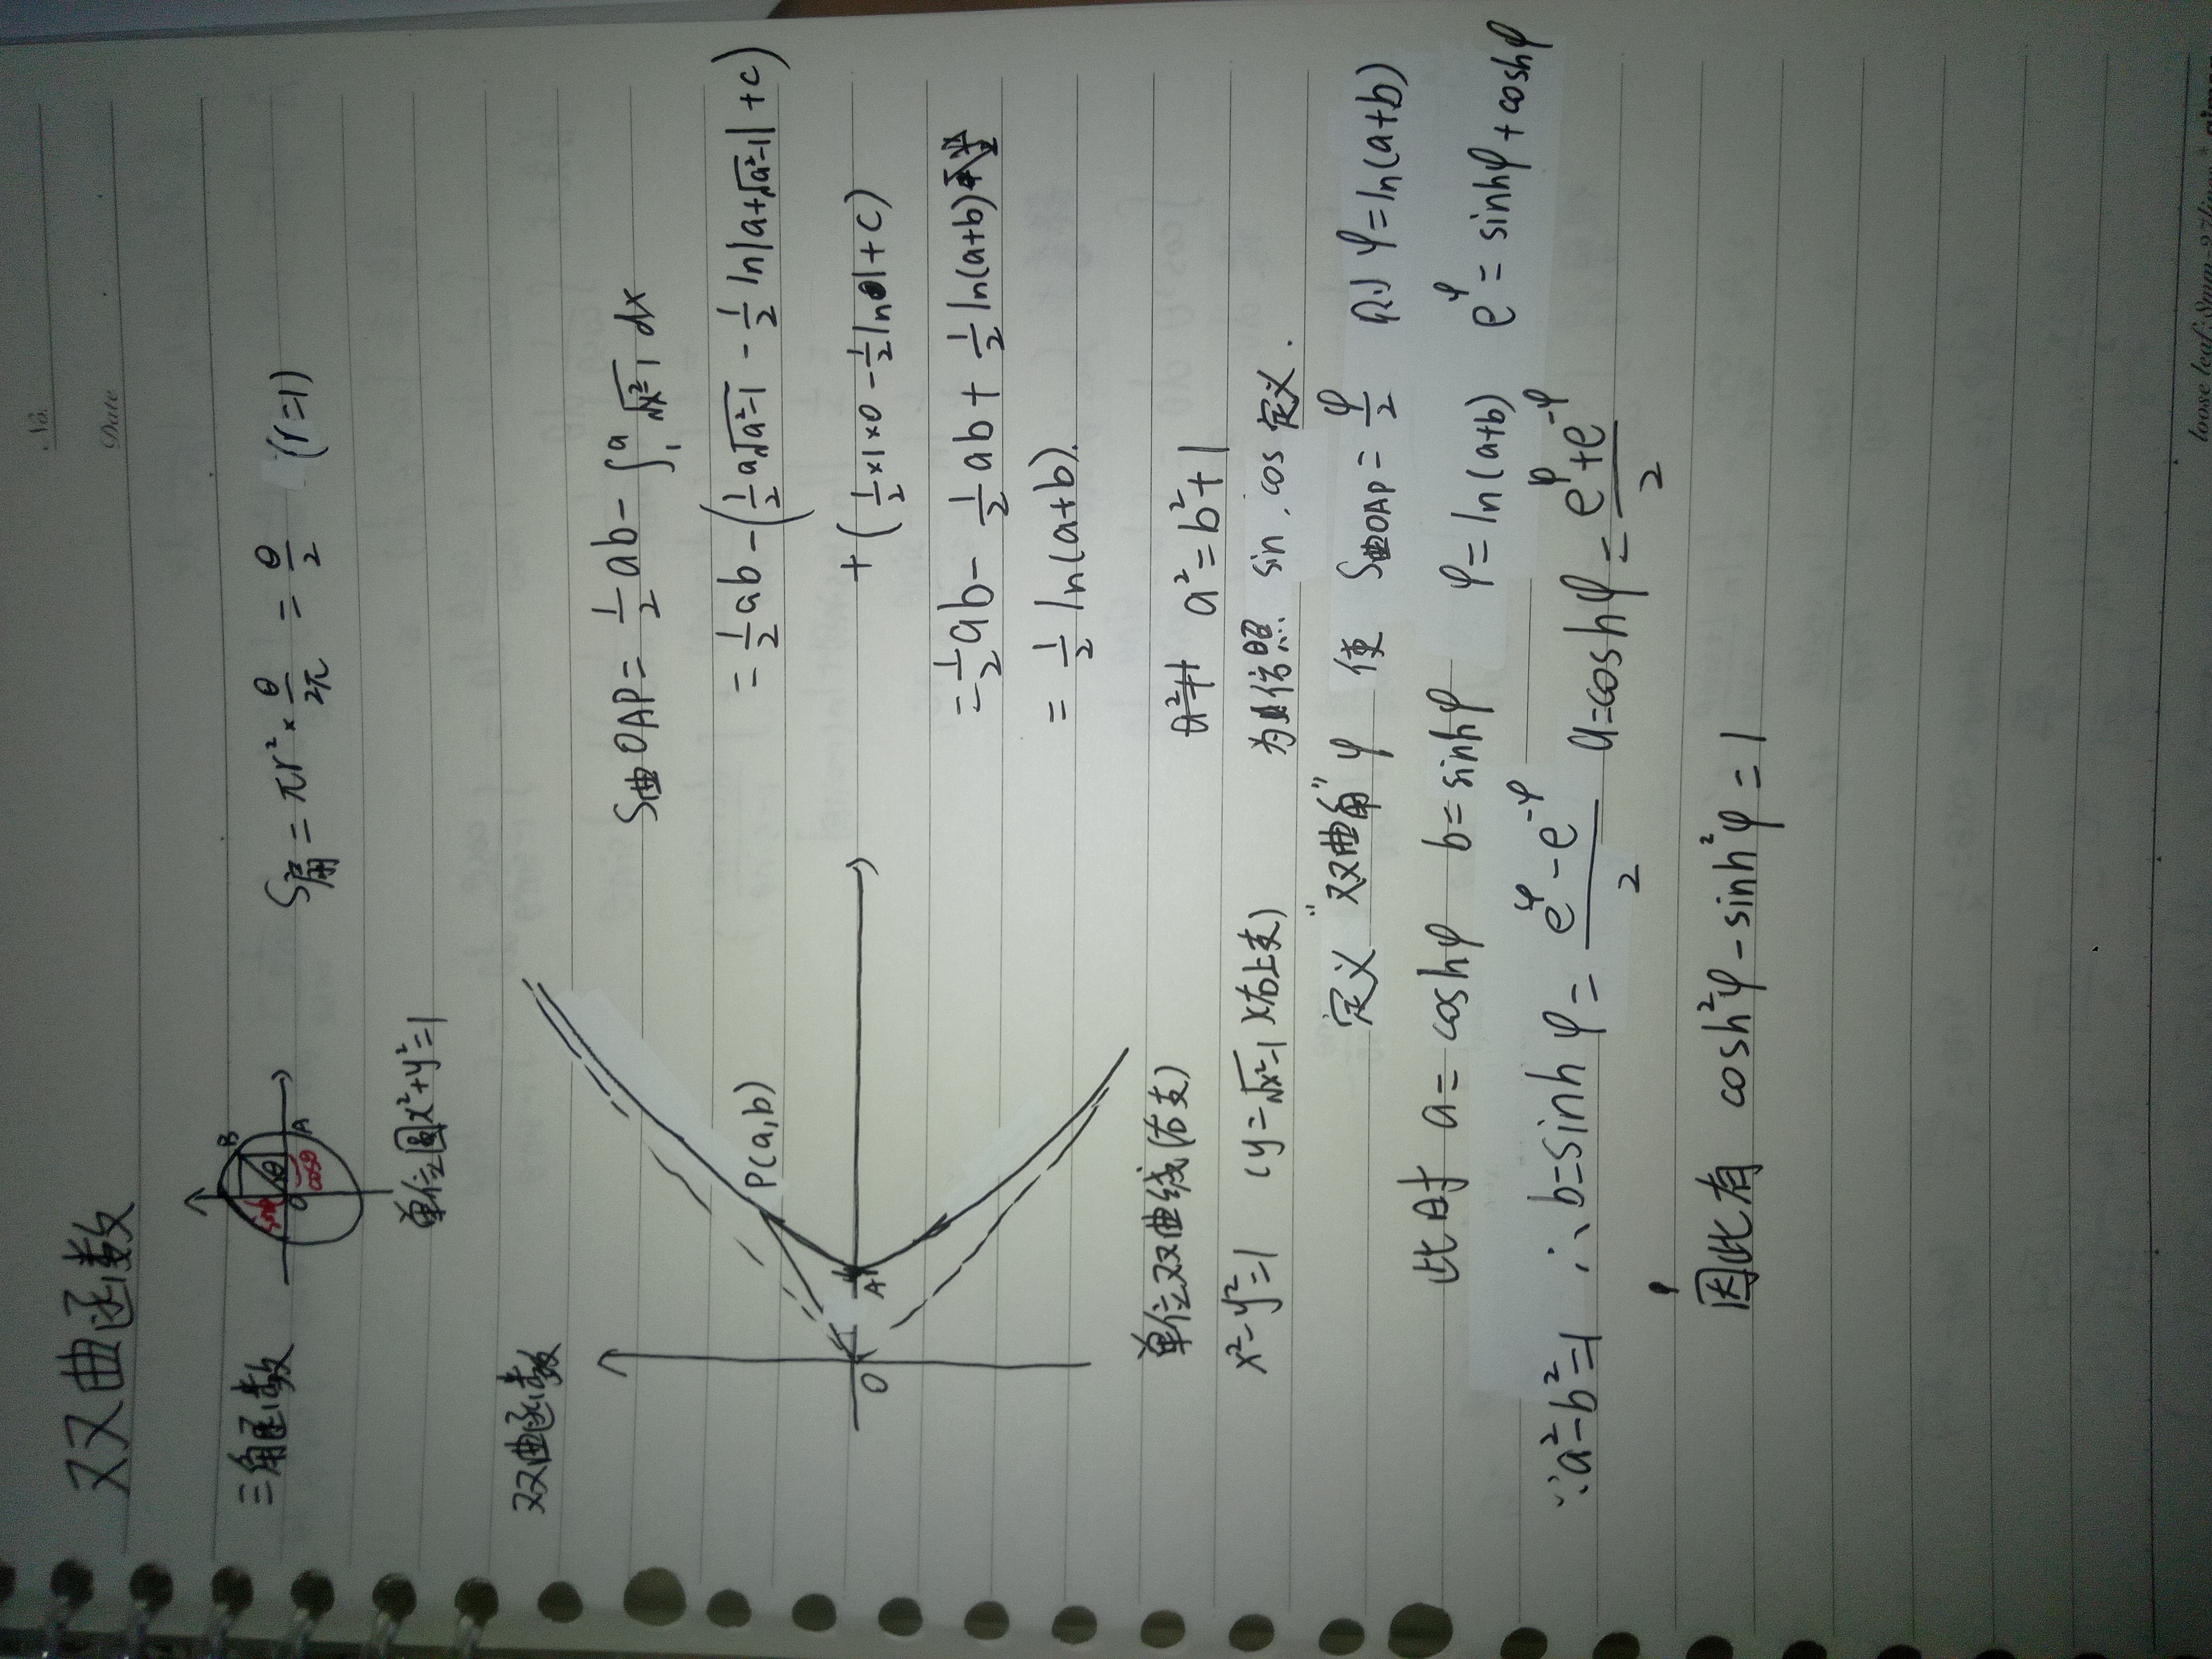 No.
Date
双曲函数
三角函数
B
sinθ
θ
O
cosθ
A
S扇=πr²×θ/2π=θ/2 (r=1)
单位圆x²+y²=1
双曲函数
P(a,b)
O
A
S曲OAP=1/2ab-∫₁ᵃ√x²-1 dx
=1/2ab-(1/2a√a²-1-1/2ln|a+√a²-1|+c)
+(1/2×1×0-1/2ln|1+c)
=1/2ab-1/2ab+1/2ln(a+b)
=1/2ln(a+b).
单位双曲线(右支)
a²=b²+1
x²-y²=1 (y=√x²-1)x右上支)
为仿照 sin,cos定义.
定义"双曲角"φ 使 S曲OAP=φ/2 则φ=ln(a+b)
此时 a=coshφ b=sinhφ φ=ln(a+b) e^φ=sinhφ+coshφ
∵a²-b²=1 ∴b=sinhφ=(e^φ-e^-φ)/2 a=coshφ=(e^φ+e^-φ)/2
因此有 cosh²φ-sinh²φ=1